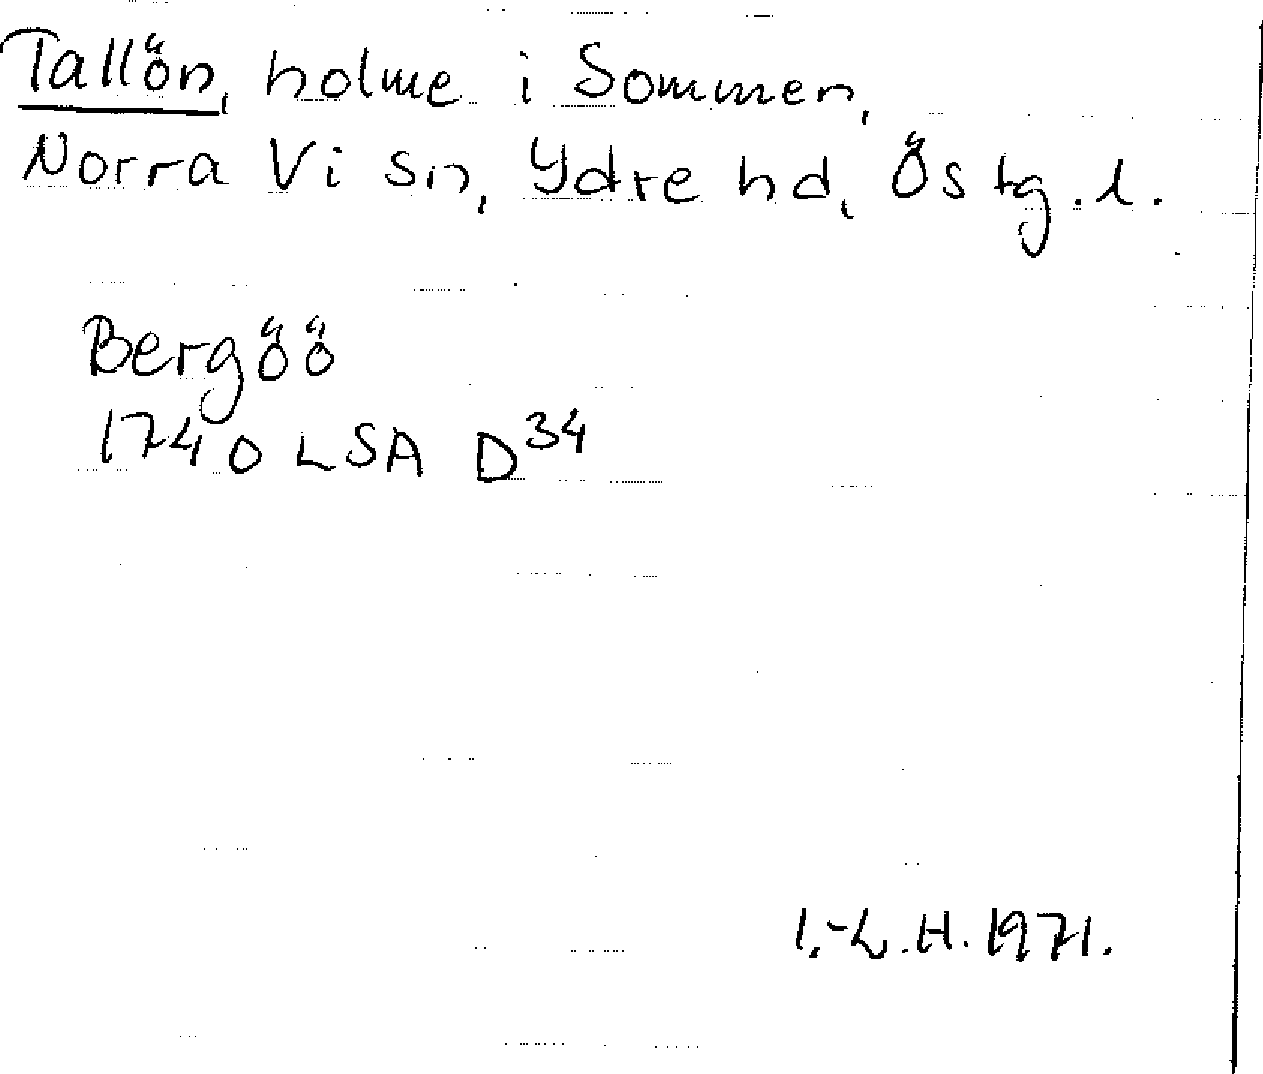 Tallön, holme i Sommen,
Norra Vi sn, Ydre hd, Östg.l.
Bergöö
1740 LSA D34
I.-L.H. 1971.